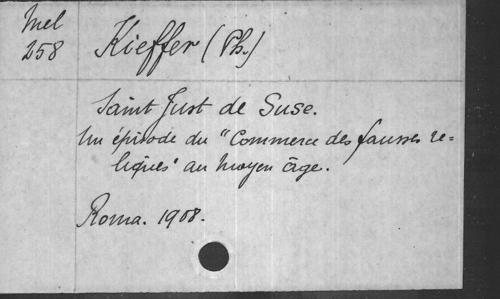 Mel
258
Kieffer (Ph.)
Saint Just de Suse.
Un épisode du "Commerce des fausses re-
liques" au moyen âge.
Roma. 1908.